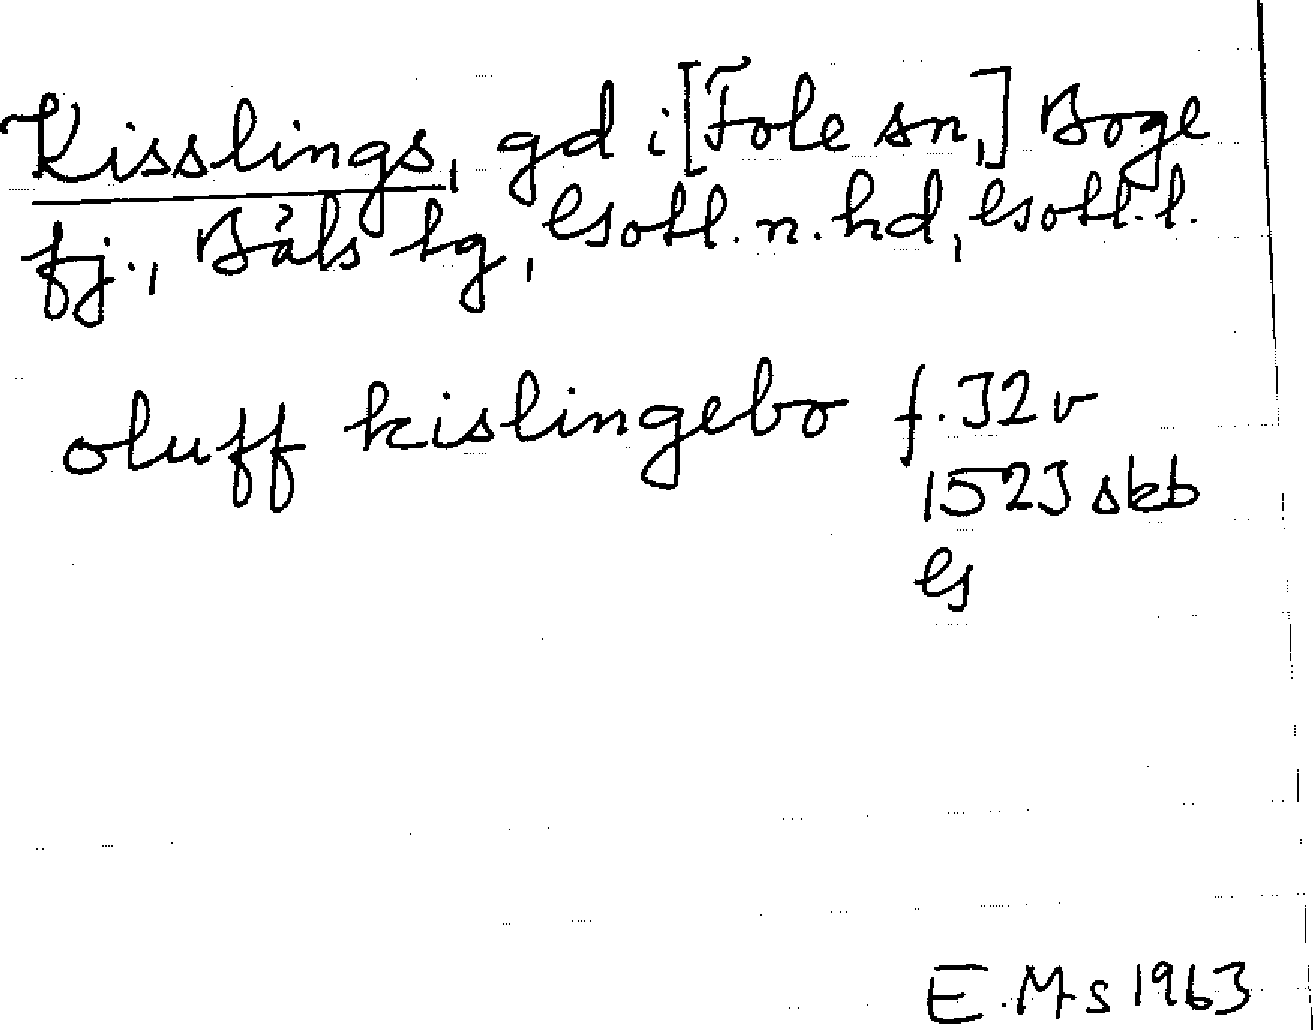 Kisslings, gd i [Fole sn,] Boge
fj., Bäls tg, Gotl. n. hd, Gotl. l.
oluff kislingebo f. 32 v
1523 skb
G
E. Ms 1963